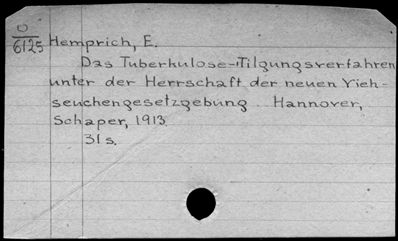 U
6125 Hemprich, E.
Das Tuberkulose-Tilgungsverfahren
unter der Herrschaft der neuen Vieh-
seuchengesetzgebung. Hannover,
Schaper, 1913.
31 s.